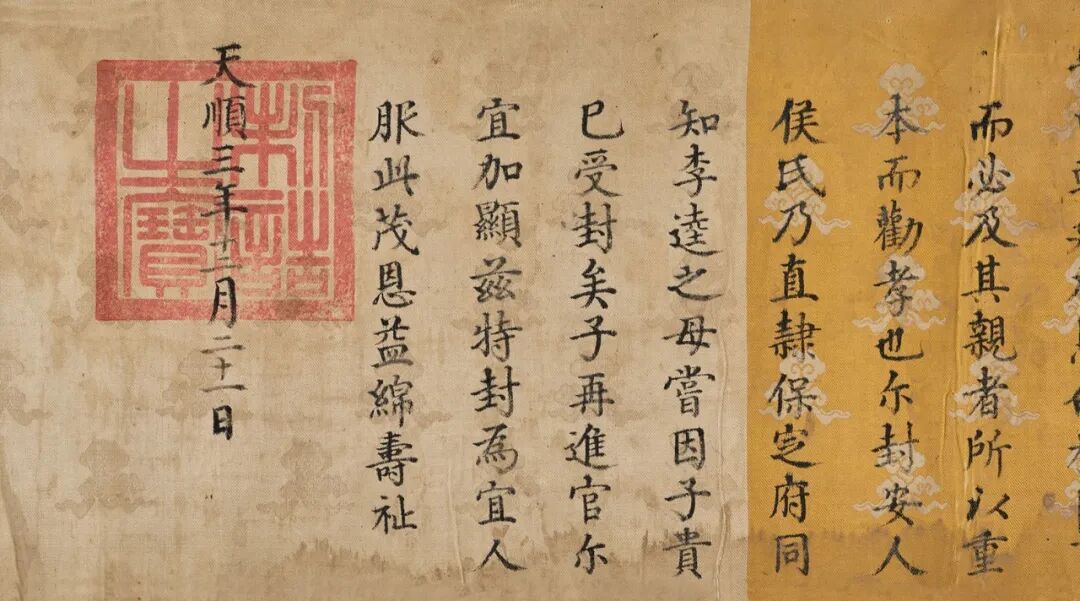 而必及其親者所以重
本而勸孝也尔封安人
侯氏乃直隸保定府同
知李逵之母嘗因子貴
已受封矣子再進官尔
宜加顯茲特封為宜人
服此茂恩益綿壽祉
天順三年十二月二十一日
制誥之寶